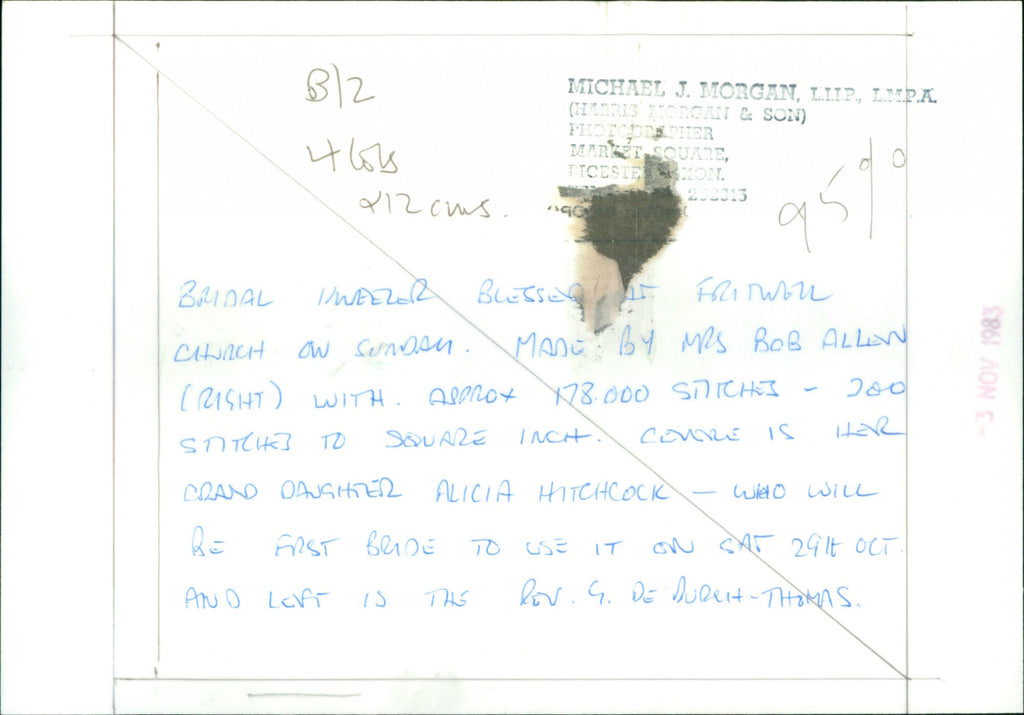 B/2
4 cols
x 12 cms.
MICHAEL J. MORGAN, L.I.I.P., L.M.P.A.
(HARRIS MORGAN & SON)
PHOTOGRAPHER
MARKET SQUARE,
BICESTER OXON.
252515
95
BRIDAL KNEELER BLESSED AT FRITWELL
CHURCH ON SUNDAY. MADE BY MRS BOB ALLEN
(RIGHT) WITH. APPROX 178.000 STITCHES - 200
STITCHES TO SQUARE INCH. CENTRE IS HER
GRAND DAUGHTER ALICIA HITCHCOCK - WHO WILL
BE FIRST BRIDE TO USE IT ON SAT 29TH OCT.
AND LEFT IS THE REV. G. DE BURGH-THOMAS.
-3 NOV 1983